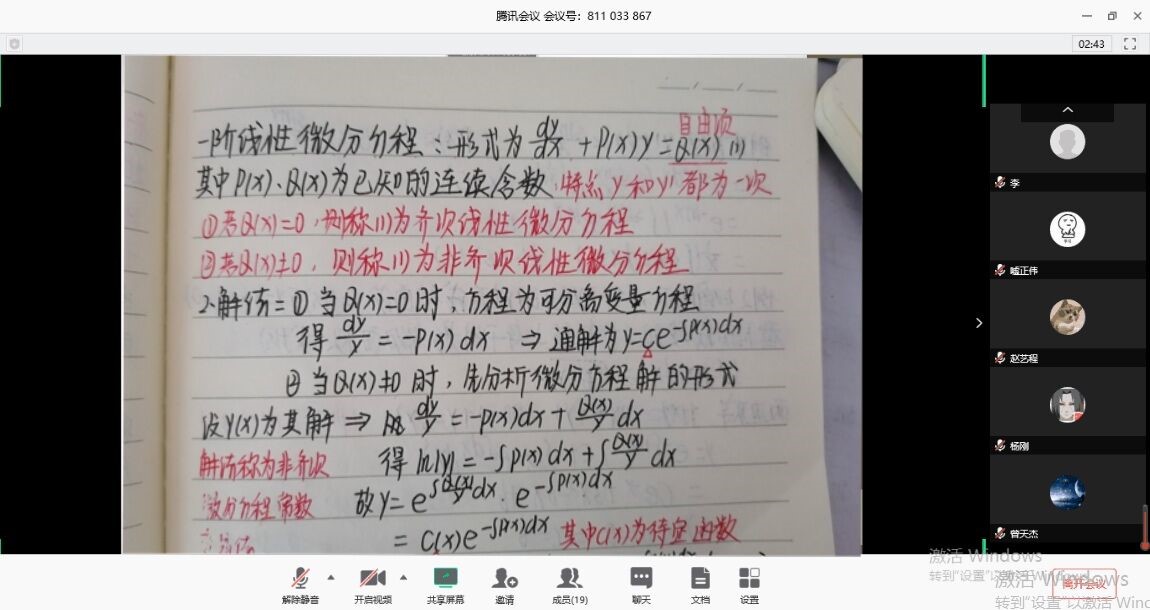 腾讯会议 会议号：811 033 867
02:43
自由项
一阶线性微分方程：形式为 dy/dx + P(x)y = Q(x) (1)
其中P(x)、Q(x)为已知的连续含数.特点 y和y'都为一次
①若Q(x)=0，则称(1)为齐次线性微分方程
②若Q(x)≠0，则称(1)为非齐次线性微分方程
2.解法=①当Q(x)=0时，方程为可分离变量方程
得 dy/y = -P(x)dx ⇒ 通解为y=ce^-∫P(x)dx
②当Q(x)≠0时，先分析微分方程解的形式
设y(x)为其解 ⇒ 从 dy/y = -P(x)dx + Q(x)/y dx
解法称为非齐次
得 ln|y| = -∫P(x)dx + ∫Q(x)/y dx
微分方程常数
故y= e^∫Q(x)/y dx · e^-∫P(x)dx
= C(x)e^-∫P(x)dx 其中C(x)为待定函数
李
嘘正伟
赵艺程
杨刚
曾天杰
解除静音
开启视频
共享屏幕
邀请
成员(19)
聊天
文档
设置
离开会议
激活 Windows
转到"设置"以激活 Win
激活 Windows
转到"设置"以激活 Winc